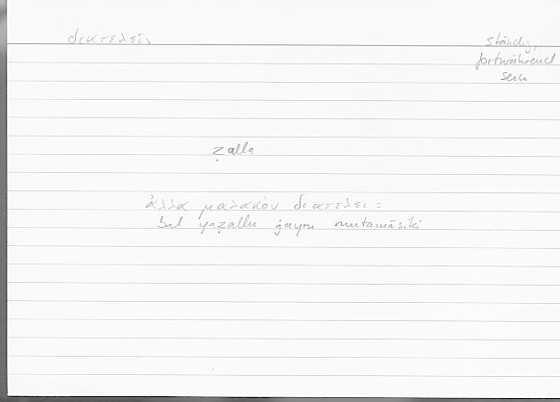 διατελεῖν
ständig,
fortwährend
sein
ẓalla
ἀλλὰ μαλακὸν διατελεῖ =
bal yaẓallu ġayru mutamāsiki